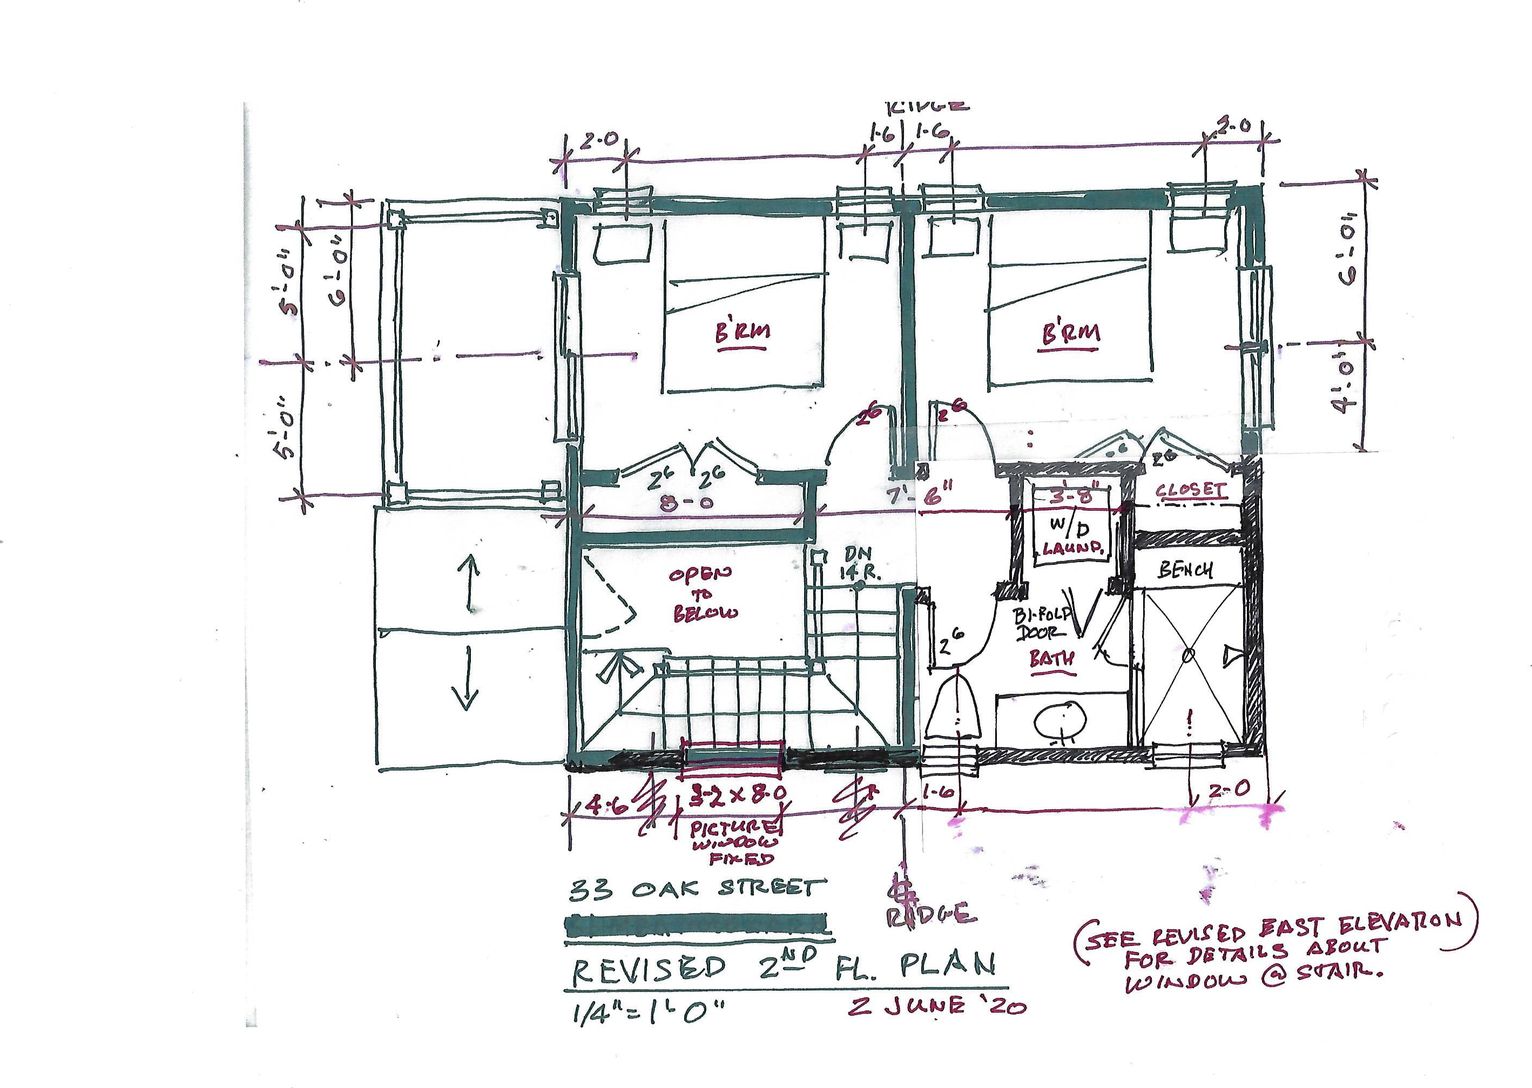 RIDGE
2-0
1-6
1-6
2-0
5'-0"
6'-0"
5'-0"
6'-0"
4'-0"
B'RM
B'RM
2⁶
2⁶
2⁶
2⁶
2⁶
8-0
7'-6"
3'-8"
CLOSET
W/D
LAUND.
OPEN
TO
BELOW
DN
14 R.
BENCH
BI-FOLD
DOOR
BATH
2⁶
4-6
3-2 x 8-0
PICTURE
WINDOW
FIXED
1-6
2-0
RIDGE
33 OAK STREET
REVISED 2ND FL. PLAN
1/4" = 1'-0"
2 JUNE '20
(SEE REVISED EAST ELEVATION)
FOR DETAILS ABOUT
WINDOW @ STAIR.